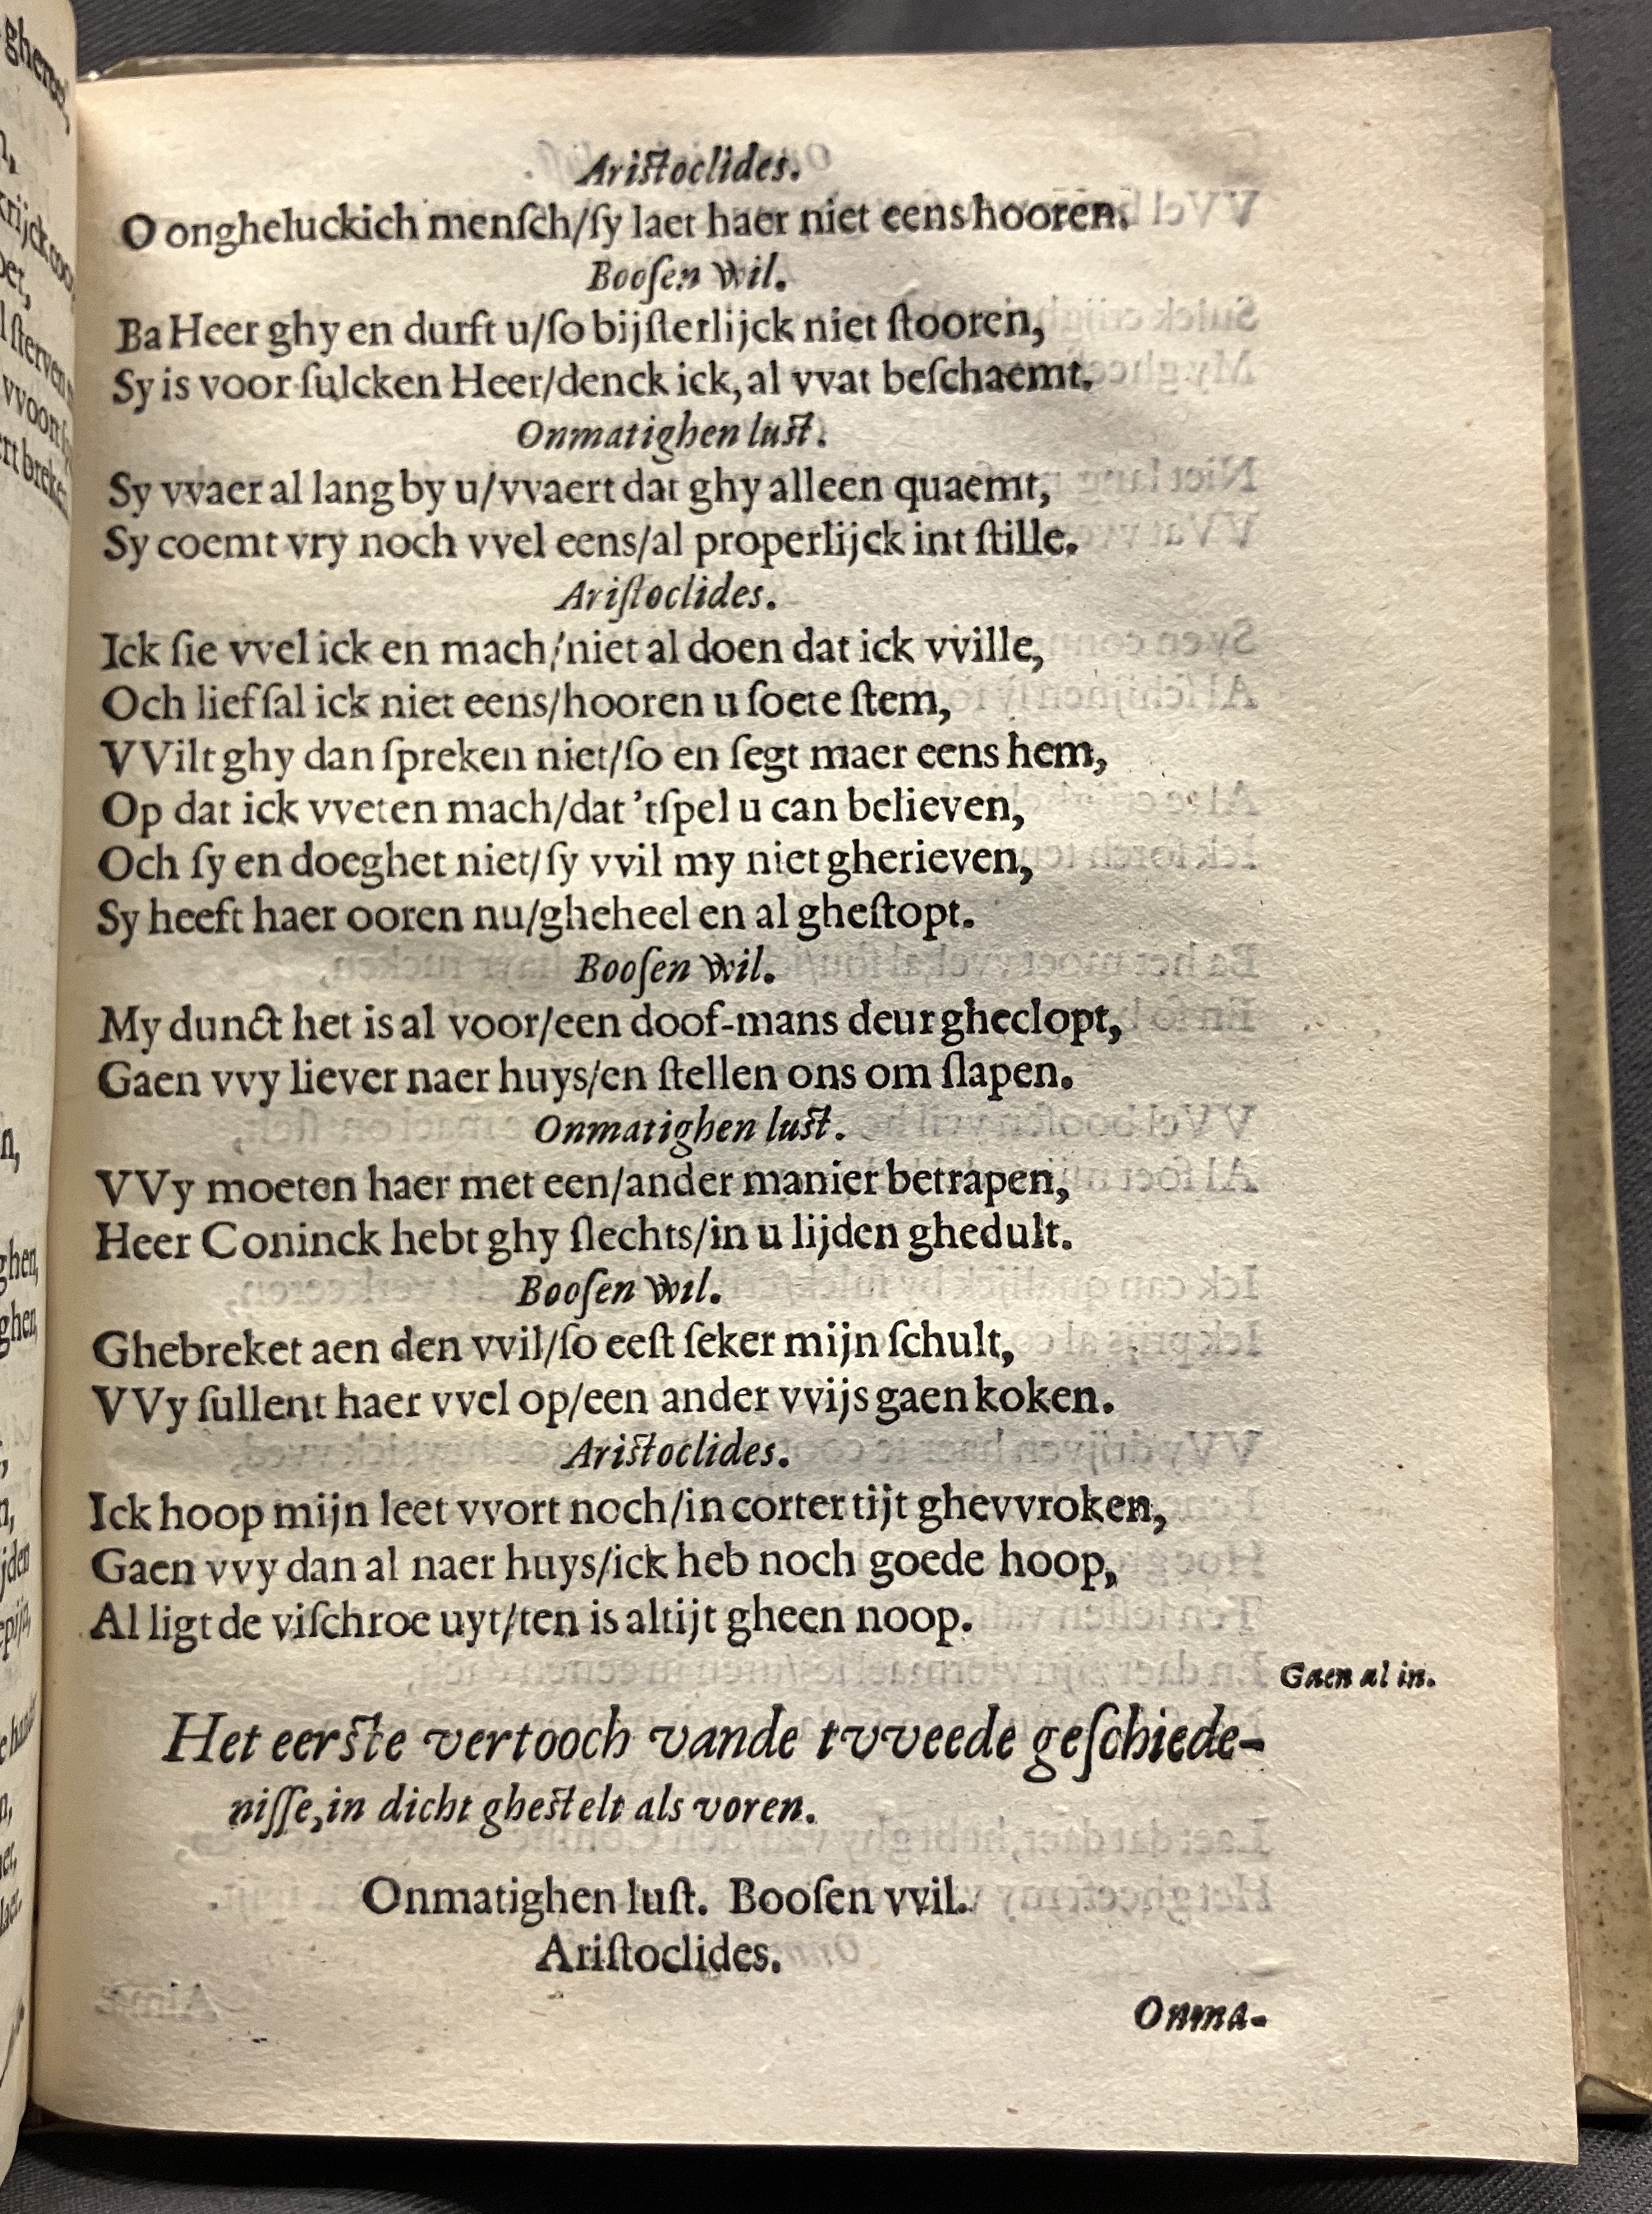 Ariſtoclides.
O ongheluckich menſch/ſy laet haer niet eens hooren.
Booſen wil.
Ba Heer ghy en durft u/ſo bijſterlijck niet ſtooren,
Sy is voor ſulcken Heer/denck ick, al vvat beſchaemt.
Onmatighen luſt.
Sy vvaer al lang by u/vvaert dat ghy alleen quaemt,
Sy coemt vry noch vvel eens/al properlijck int ſtille.
Ariſtoclides.
Ick ſie vvel ick en mach/niet al doen dat ick vville,
Och lief ſal ick niet eens/hooren u ſoete ſtem,
VVilt ghy dan ſpreken niet/ſo en ſegt maer eens hem,
Op dat ick vveten mach/dat 'tſpel u can believen,
Och ſy en doeghet niet/ſy vvil my niet gherieven,
Sy heeft haer ooren nu/gheheel en al gheſtopt.
Booſen wil.
My dunct het is al voor/een doof-mans deur gheclopt,
Gaen vvy liever naer huys/en ſtellen ons om ſlapen.
Onmatighen luſt.
VVy moeten haer met een/ander manier betrapen,
Heer Coninck hebt ghy ſlechts/in u lijden ghedult.
Booſen wil.
Ghebreket aen den vvil/ſo eeſt ſeker mijn ſchult,
VVy ſullent haer vvel op/een ander vvijs gaen koken.
Ariſtoclides.
Ick hoop mijn leet vvort noch/in corter tijt ghevvroken,
Gaen vvy dan al naer huys/ick heb noch goede hoop,
Al ligt de viſchroe uyt/ten is altijt gheen noop.
Gaen al in.
Het eerſte vertooch vande tvveede geſchiede-
niſſe, in dicht gheſtelt als voren.
Onmatighen luſt. Booſen vvil.
Ariſtoclides.
Onma-